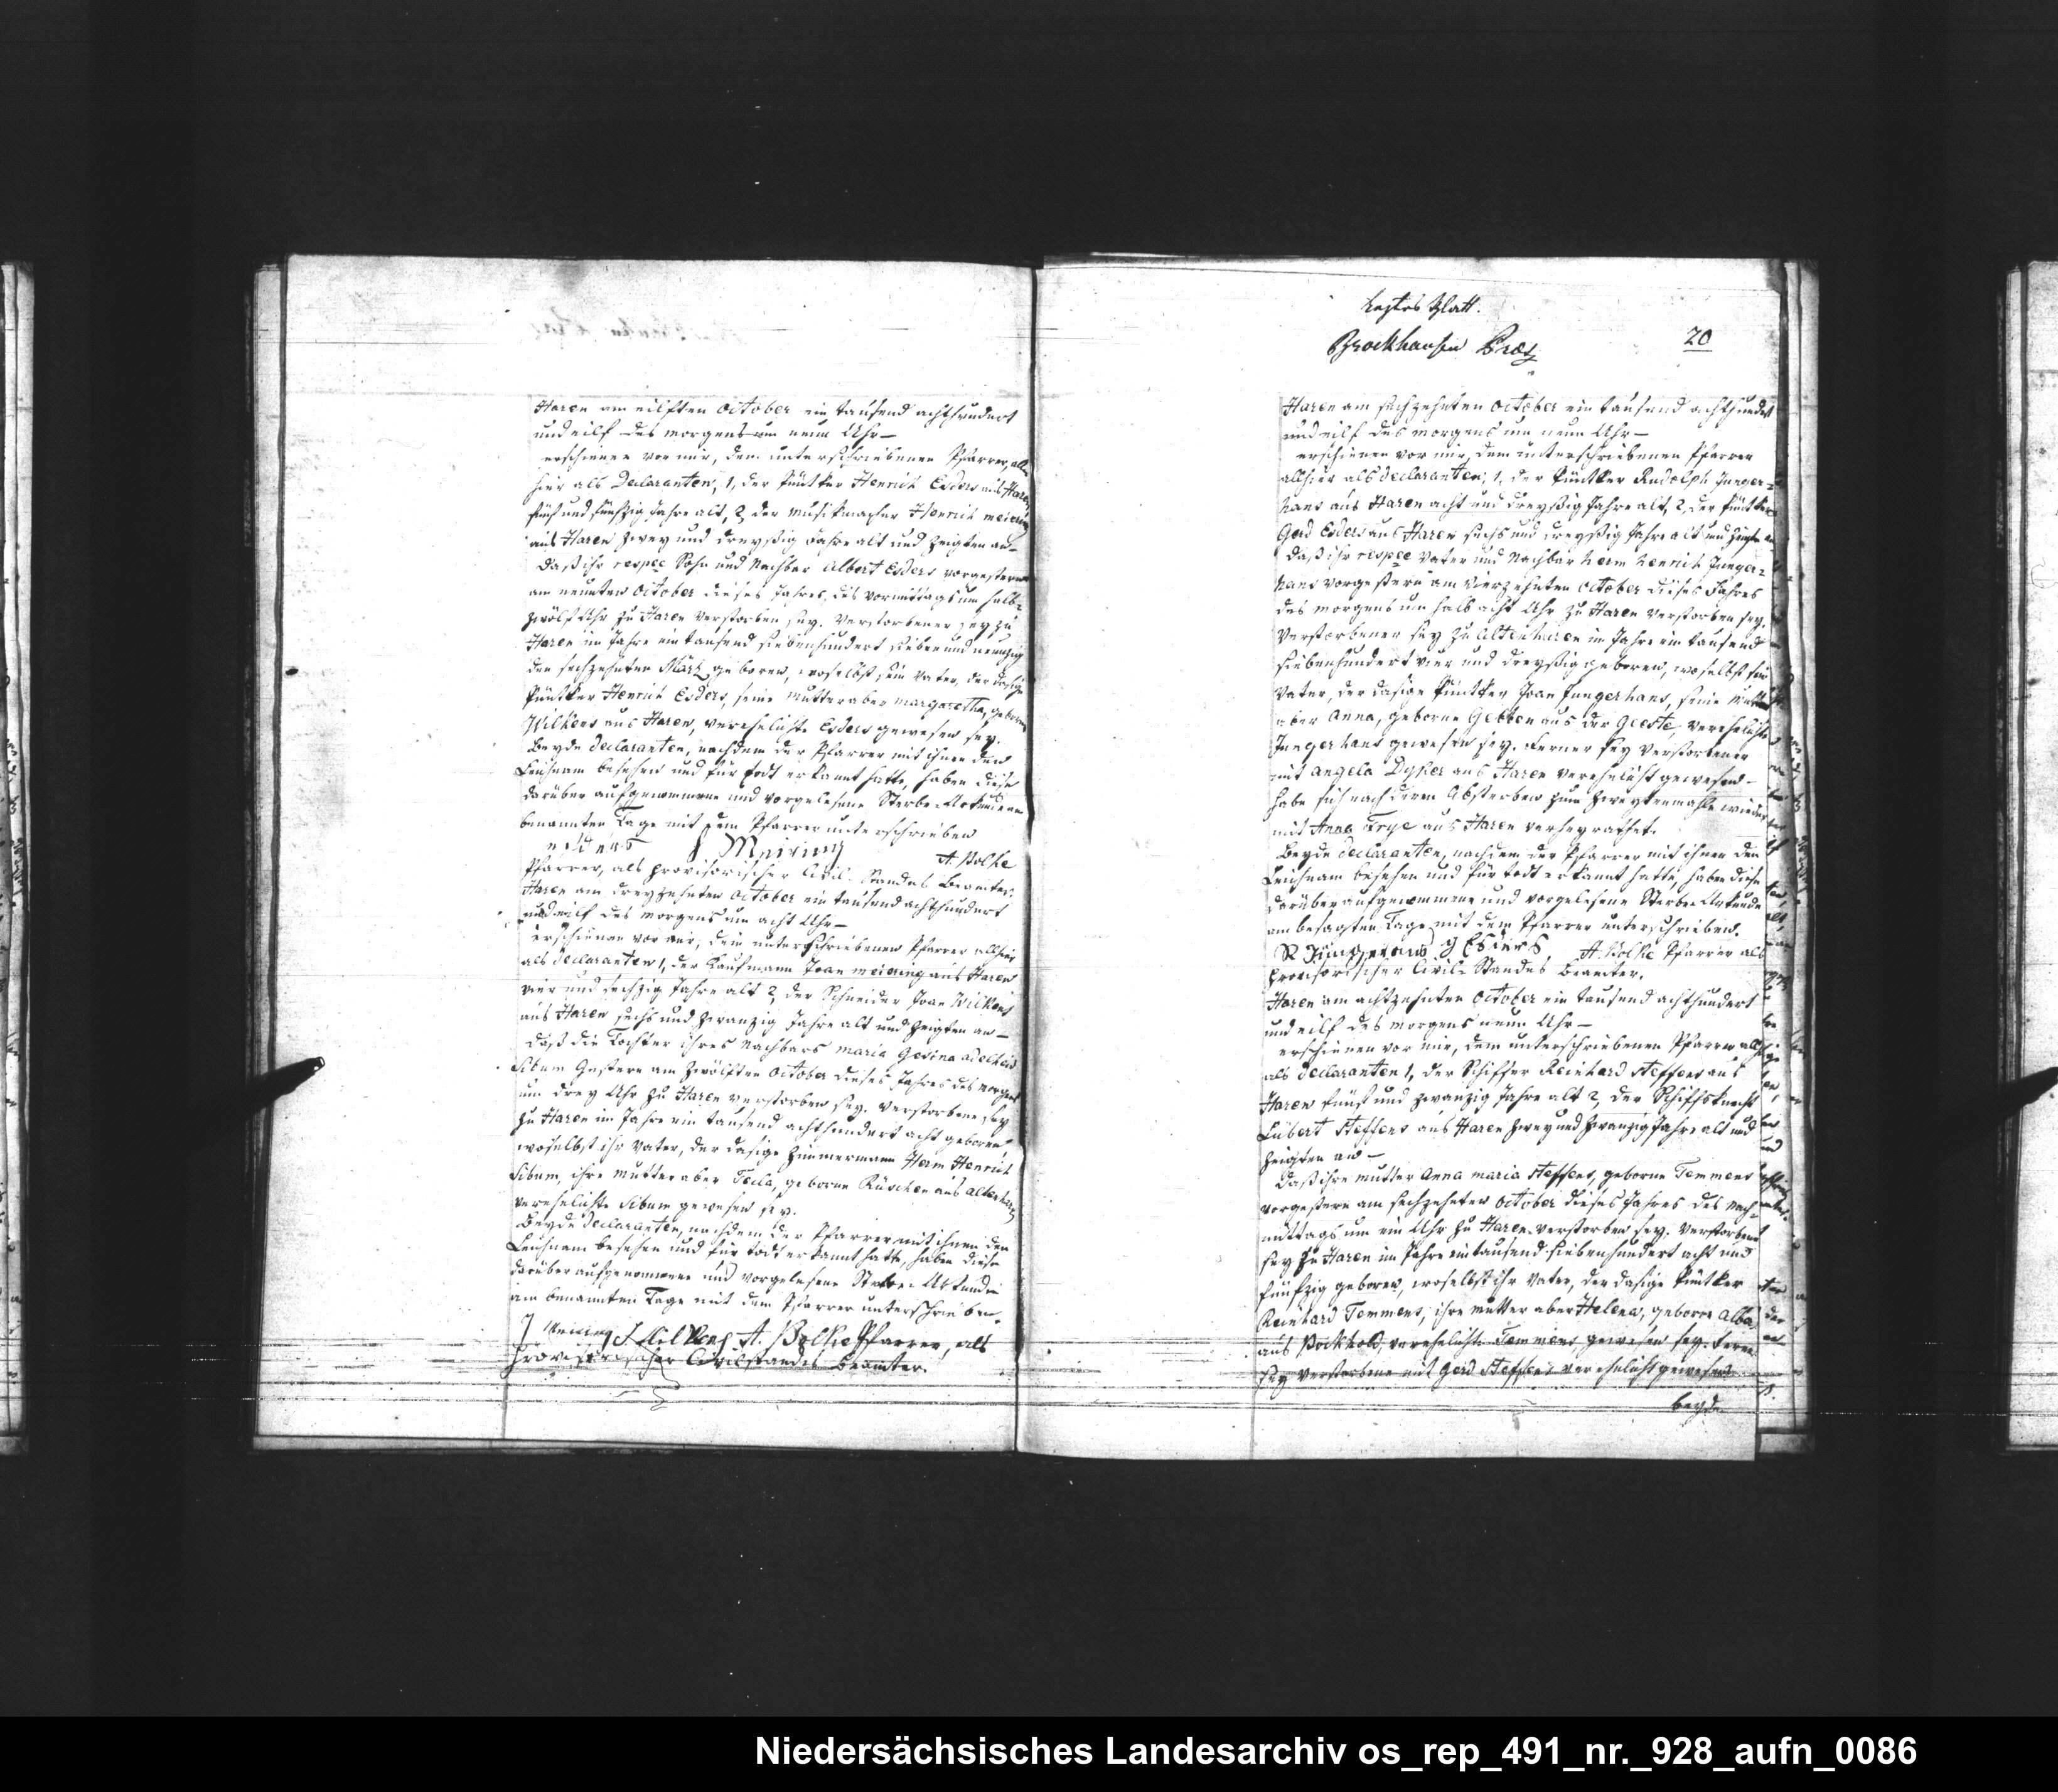 Haren am eilften October ein tausend achthundert
und eilf des morgens um neun Uhr—
erschienen vor mir, dem unterschriebenen Pfarrer, all-
hier als Declaranten, 1, der Henrich Esders aus Haren
fünf und fünfzig Jahre alt, 2, der Musikmacher Henrich meiering
aus Haren zwey und dreyßig Jahre alt und zeigten an—
daß ihr respee Sohn und Nachbar Albert Esders vorgestern
am neunten October dieses Jahres, des vormittags um halb
zwölf Uhr zu Haren verstorben sey. Verstorbener sey zu
Haren im Jahre ein tausend siebenhundert sieben und neunzig
den sechzehnten März geboren, woselbst sein Vater, der dasige
Henrich Esders, seine Mutter aber margaretha, geborne
Wilkens aus Haren, verehelichte Esders gewesen sey.
Beyde declaranten, nachdem der Pfarrer mit ihnen den
Leichnam besehen und für todt erkannt hatte, haben diese
darüber aufgenommene und vorgelesene Sterbe-Urkunde am
benannten Tage mit dem Pfarrer unterschrieben
Meiring A. Bolke
Pfarrer, als provisorischer Civil-Standes Beamter.
Haren am dreyzehnten October ein tausend achthundert
und eilf des morgens um acht Uhr—
erschienen vor mir, dem unterschriebenen Pfarrer allhier
als declaranten 1, der Kaufmann Joan meiering aus Haren
vier und sechzig Jahre alt 2, der Schneider Joan Wilkens
aus Haren sechs und zwanzig Jahre alt und zeigten an—
daß die Tochter ihres Nachbars maria Gesina adelheid
Sibum Gestern am zwölften October dieses Jahres des morgens
um drey Uhr zu Haren verstorben sey. Verstorbene sey
zu Haren im Jahre ein tausend achthundert acht geboren,
woselbst ihr Vater, der dasige Zimmermann Herm Henrich
Sibum, ihre mutter aber Tecla, geborne Rüschen aus Altenharen
verehelichte Sibum gewesen sey.
Beyde declaranten, nachdem der Pfarrer mit ihnen den
Leichnam besehen und für todt erkannt hatte, haben diese
darüber aufgenommene und vorgelesene Sterbe-Urkunde
am benannten Tage mit dem Pfarrer unterschrieben.
J Meiring J Wilkens A. Bolke Pfarrer, als
provisorischer Civilstandes Beamter.
Leztes Blatt.
Brockhausen
20
Haren am sechzehnten October ein tausend achthundert
und eilf des morgens um neun Uhr—
erschienen vor mir, dem unterschriebenen Pfarrer
allhier als declaranten, 1, der Rudolph Junger-
hans aus Haren acht und dreyßig Jahre alt, 2, der
Gerd Esders aus Haren sechs und dreyßig Jahre alt und zeigten an
daß ihr respee Vater und Nachbar Herm Henrich Junger-
hans vorgestern am vierzehnten October dieses Jahres
des morgens um halb acht Uhr zu Haren verstorben sey.
Verstorbener sey zu Altenharen im Jahre ein tausend
siebenhundert vier und dreyßig geboren, woselbst sein
Vater, der dasige Joan Jungerhans, seine Mutter
aber Anna, geborne Gebken aus der Geeste, verehelichte
Jungerhans gewesen sey. Ferner sey Verstorbener
mit angela Dyker aus Haren verehelicht gewesen—
habe sich nach deren Absterben zum zweytenmahle wieder
mit Anna Frye aus Haren verheyrathet.
Beyde declaranten, nachdem der Pfarrer mit ihnen den
Leichnam besehen und für todt erkannt hatte, haben diese
darüber aufgenommene und vorgelesene Sterbe-Urkunde
am besagten Tage mit dem Pfarrer unterschrieben.
R Jüngerhans g Esders A. Bolke Pfarrer als
provisorischer Civil-Standes Beamter.
Haren am achtzehnten October ein tausend achthundert
und eilf des morgens neun Uhr—
erschienen vor mir, dem unterschriebenen Pfarrer allhier
als declaranten 1, der Schiffer Reinhard Steffens aus
Haren fünf und zwanzig Jahre alt 2, der Schiffsknecht
Lübert Steffens aus Haren zwey und zwanzig Jahre alt und
zeigten an—
daß ihre mutter Anna maria Steffens, geborne Temmens
vorgestern am sechzehnten October dieses Jahres des Nach-
mittags um ein Uhr zu Haren verstorben sey. Verstorbene
sey zu Haren im Jahre ein tausend siebenhundert acht und
fünfzig geboren, woselbst ihr Vater, der dasige
Reinhard Temmens, ihre mutter aber Helena, geborne Alba
aus verehelichte Temmens gewesen sey. Ferner
sey Verstorbene mit Gerd Steffens verehelicht gewesen
beyde
Niedersächsisches Landesarchiv os_rep_491_nr._928_aufn_0086